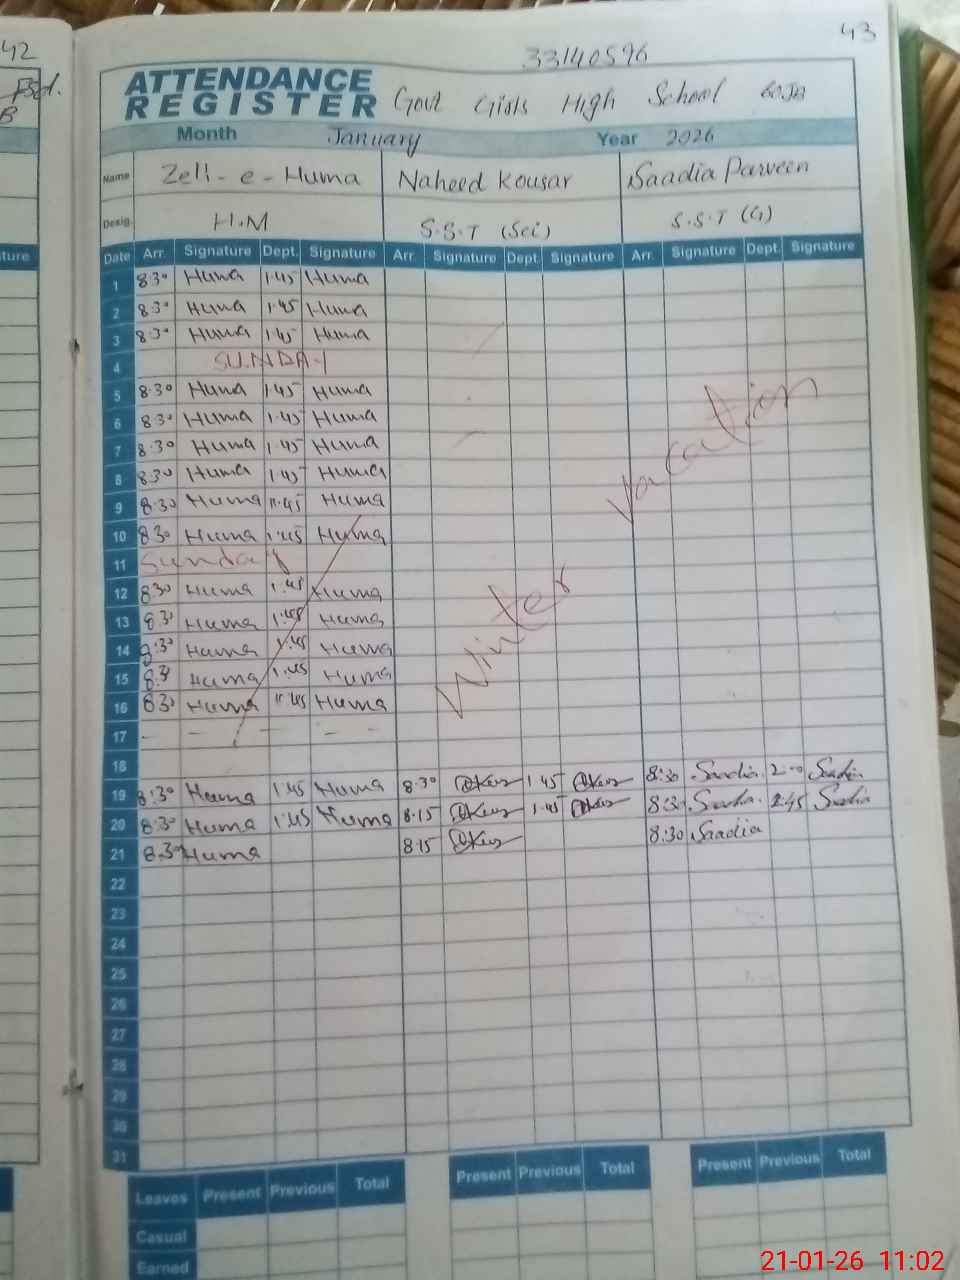 42
43
33140596
ATTENDANCE REGISTER Govt Girls High School 60JB
Month January Year 2026
Name Zell-e-Huma Naheed Kousar Saadia Parveen
Desig. H.M S.S.T (Sci) S.S.T (G)
Date Arr. Signature Dept. Signature Arr. Signature Dept. Signature Arr. Signature Dept. Signature
1 8:30 Huma 1:45 Huma
2 8:30 Huma 1:45 Huma
3 8:30 Huma 1:45 Huma
4 SUNDAY
5 8:30 Huma 1:45 Huma
6 8:30 Huma 1:45 Huma
7 8:30 Huma 1:45 Huma
8 8:30 Huma 1:45 Huma
9 8:30 Huma 11:45 Huma
10 8:30 Huma 1:45 Huma
11 Sunday
12 8:30 Huma 1:45 Huma
13 8:30 Huma 1:45 Huma
14 8:30 Huma 1:45 Huma
15 8:30 Huma 1:45 Huma
16 8:30 Huma 11:45 Huma
17 - - - - -
Winter Vacation
18
19 8:30 Huma 1:45 Huma 8:30 1:45 8:30 Saadia 2:00 Saadia
20 8:30 Huma 1:45 Huma 8:15 1:45 8:30 Saadia 2:45 Saadia
21 8:30 Huma 8:15 8:30 Saadia
22
23
24
25
26
27
28
29
30
31
Leaves Present Previous Total Present Previous Total Present Previous Total
Casual
Earned
21-01-26 11:02